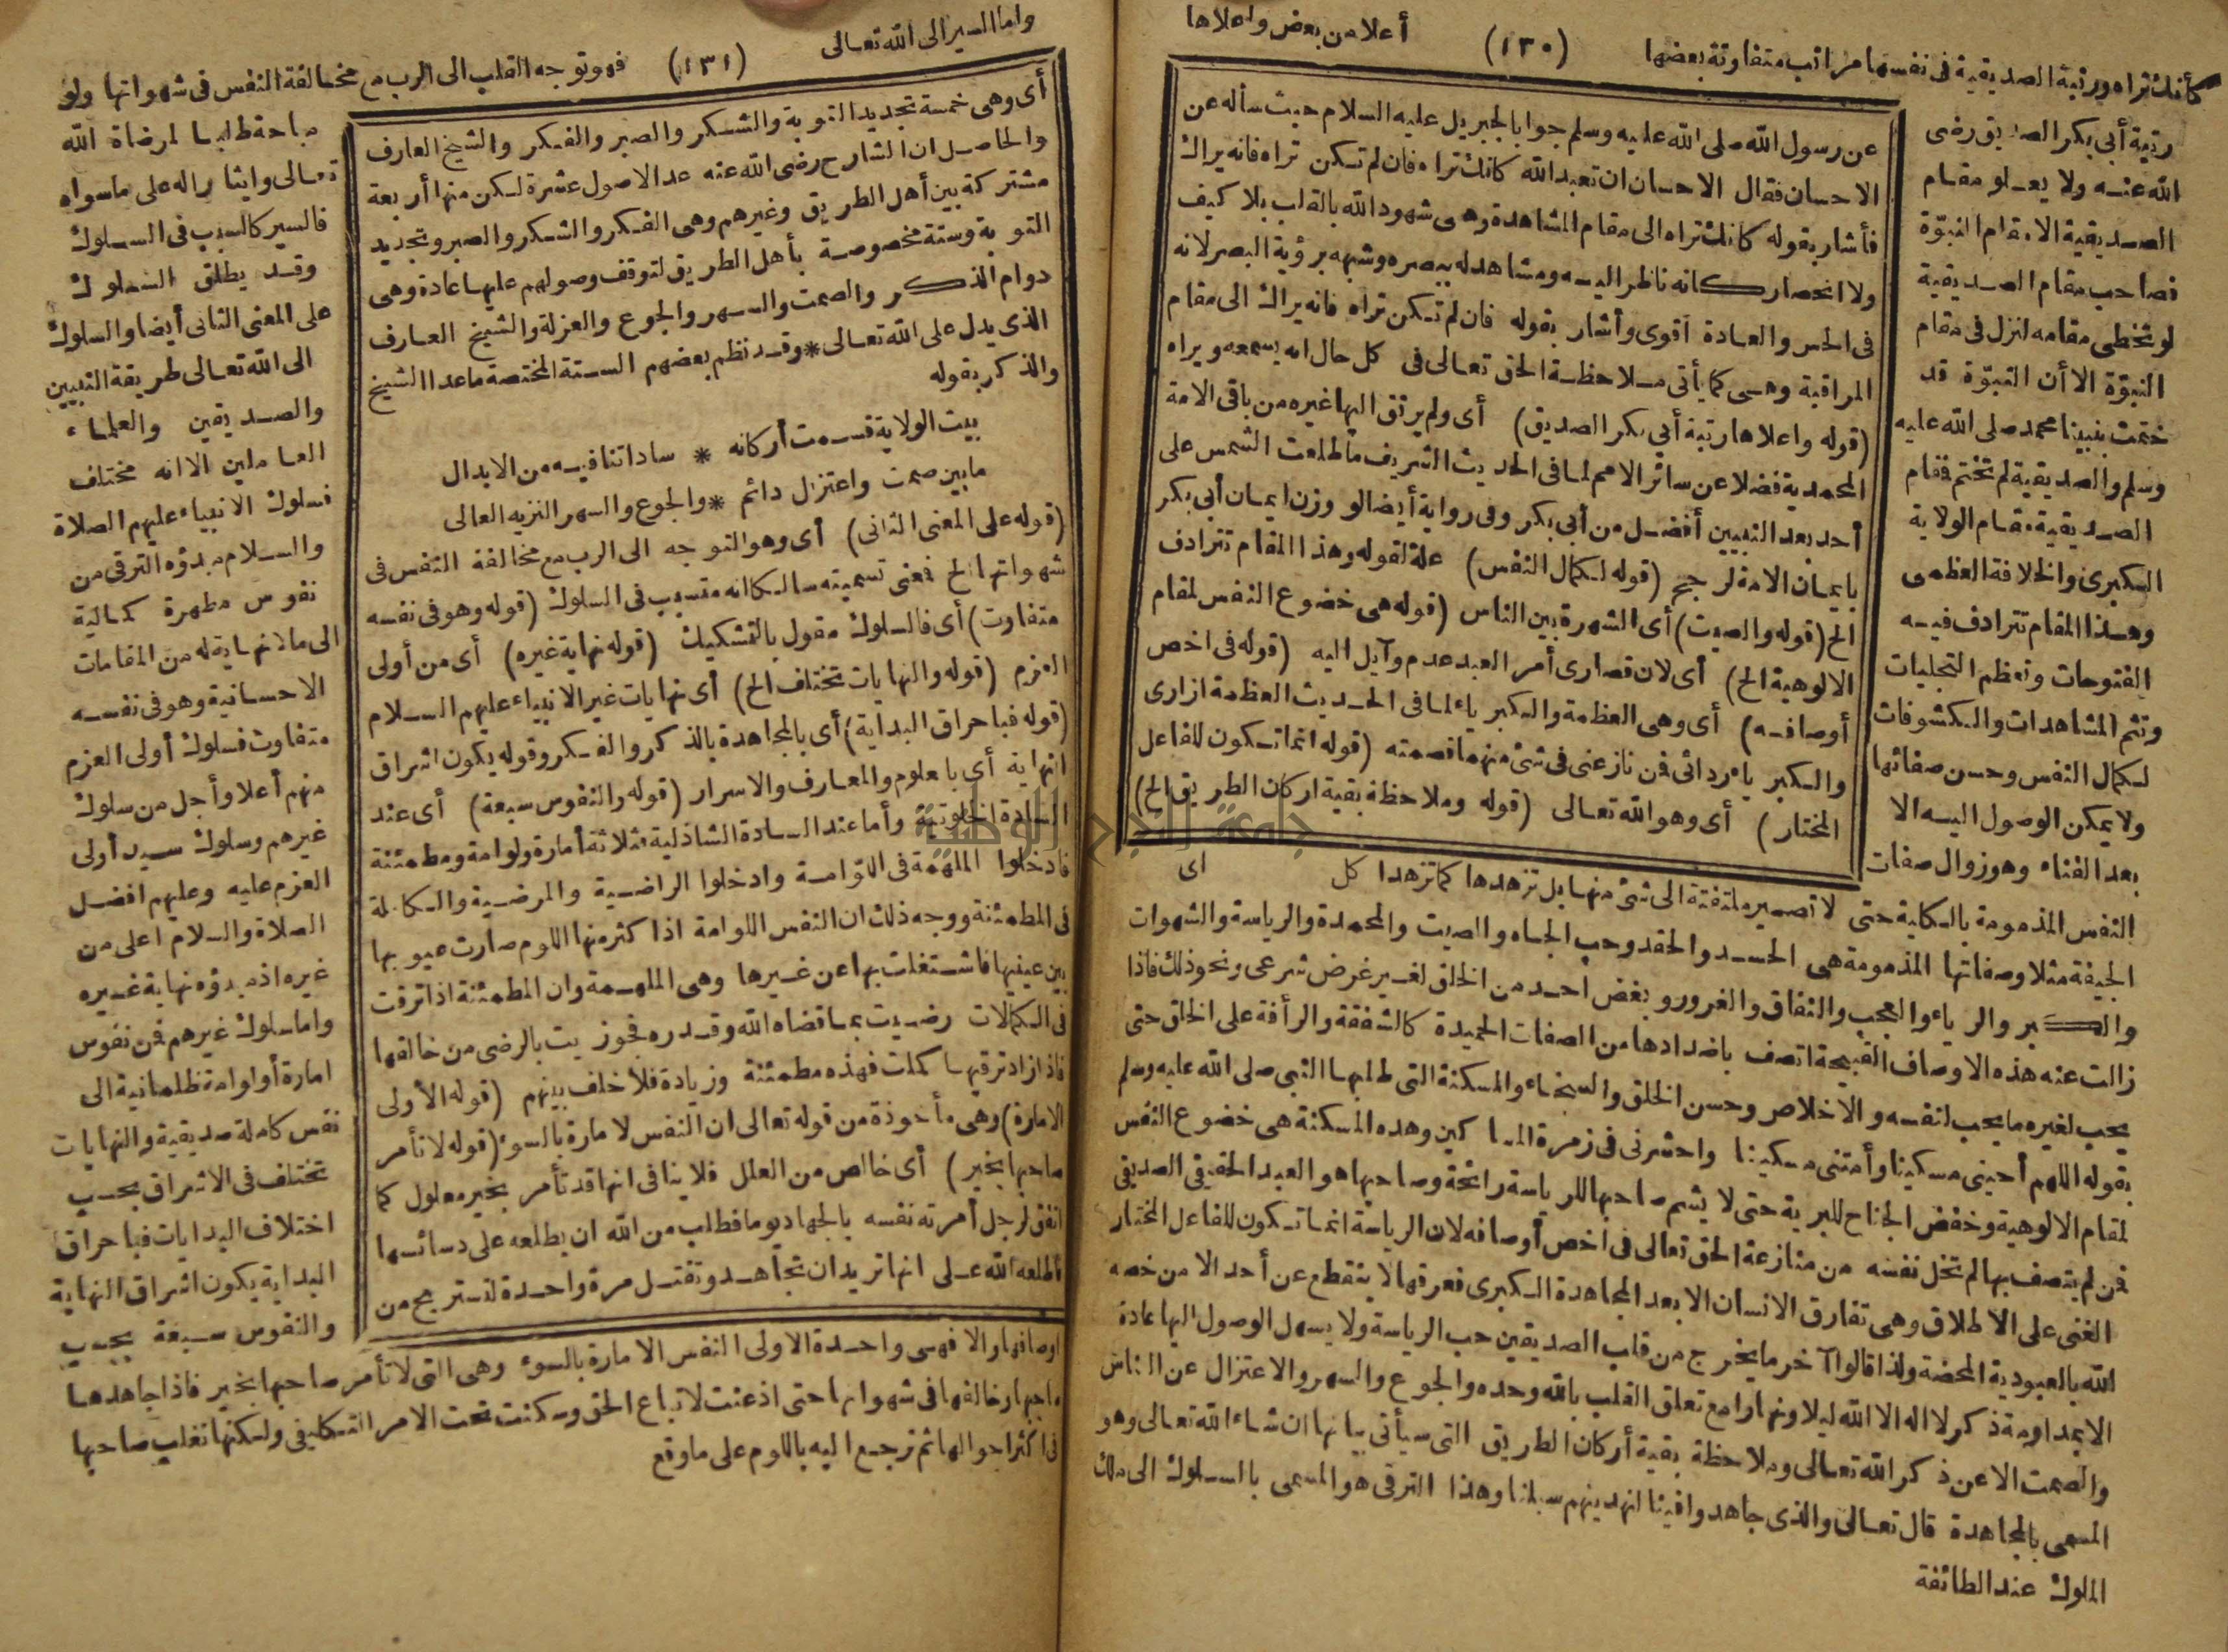 كأنك تراه ورتبة الصديقية فى نفسها مراتب متفاوتة بعضها (١٣٠) أعلا من بعض واعلاها
رتبة أبى بكر الصديق رضى
الله عنه ولا يعلو مقام
الصديقية الا مقام النبوّة
فصاحب مقام الصديقية
لو تخطى مقامه لنزل فى مقام
النبوّة الا أن النبوّة قد
ختمت بنبينا محمد صلى الله عليه
وسلم والصديقية لم تختم فمقام
الصديقية مقام الولاية
الكبرى والخلافة العظمى
وهذا المقام تترادف فيه
الفتوحات وتعظم التجليات
وتتم المشاهدات والكشوفات
لكمال النفس وحسن صفائها
ولا يمكن الوصول اليه الا
بعد الفناء وهو زوال صفات
النفس المذمومة بالكلية حتى لا تصير ملتفتة الى شئ منها بل تزهدها كما تزهدا كل اى
الجيفة مثلا وصفاتها المذمومة هى الحسد والحقد وحب الجاه والصيت والمحمدة والرياسة والشهوات
والكبر والرياء والعجب والنفاق والغرور وبغض احد من الخلق لغير غرض شرعى ونحو ذلك فاذا
زالت عنه هذه الاوصاف القبيحة اتصف باضدادها من الصفات الحميدة كالشفقة والرأفة على الخلق حتى
يحب لغيره ما يحب لنفسه والاخلاص وحسن الخلق والسخاء والمسكنة التى طلبها النبى صلى الله عليه وسلم
بقوله اللهم أحينى مسكينا وأمتنى مسكينا واحشرنى فى زمرة المساكين وهذه المسكنة هى خضوع النفس
لمقام الالوهية وخفض الجناح للبرية حتى لا يشم صاحبها للرياسة رائحة وصاحبها هو العبد الحقيقى الصديقى
فمن لم يتصف بها لم تخل نفسه من منازعة الحق تعالى فى أخص أوصافه لان الرياسة انما تكون للفاعل المختار
الغنى على الاطلاق وهى تفارق الانسان الا بعد المجاهدة الكبرى فعرقها لا ينقطع عن أحد الا من خصه
الله بالعبودية المحضة ولذا قالوا آخر ما يخرج من قلب الصديقين حب الرياسة ولا يسهل الوصول اليها عادة
الا بمداومة ذكر لا اله الا الله ليلا ونهارا مع تعلق القلب بالله وحده والجوع والسهر والاعتزال عن الناس
والصمت الا عن ذكر الله تعالى وملاحظة بقية أركان الطريق التى سيأتى بيانها ان شاء الله تعالى وهو
المسمى بالمجاهدة قال تعالى والذى جاهدوا فينا لنهدينهم سبلنا وهذا الترقى هو المسمى بالسلوك الى ملك
الملوك عند الطائفة
عن رسول الله صلى الله عليه وسلم جوابا لجبريل عليه السلام حيث سأله عن
الاحسان فقال الاحسان ان تعبد الله كانك تراه فان لم تكن تراه فانه يراك
فأشار بقوله كانك تراه الى مقام المشاهدة وهى شهود الله بالقلب بلا كيف
ولا انحصار كانه ناظر اليه ومشاهد له ببصره وشبهه برؤية البصر لانه
فى الحس والعادة أقوى وأشار بقوله فان لم تكن تراه فانه يراك الى مقام
المراقبة وهى كما يأتى ملاحظة الحق تعالى فى كل حال انه يسمعه ويراه
(قوله واعلاها رتبة أبى بكر الصديق) أى ولم يرتق اليها غيره من باقى الامة
المحمدية فضلا عن سائر الامم لما فى الحديث الشريف ما طلعت الشمس على
أحد بعد النبيين أفضل من أبى بكر وفى رواية أيضا لو وزن ايمان أبى بكر
بايمان الامة لرجح (قوله لكمال النفس) علة لقوله وهذا المقام تترادف
الخ (قوله والصيت) أى الشهرة بين الناس (قوله هى خضوع النفس لمقام
الالوهية الخ) أى لان قصارى أمر العبد عدم وآيل اليه (قوله فى اخص
أوصافه) أى وهى العظمة والكبرياء لما فى الحديث العظمة ازارى
والكبرياء ردائى فمن نازعنى فى شئ منهما قصمته (قوله انما تكون للفاعل
المختار) أى وهو الله تعالى (قوله وملاحظة بقية اركان الطريق الخ)
واما السير الى الله تعالى (١٣١) فهو توجه القلب الى الرب مع مخالفة النفس فى شهواتها ولو
مباحة طلبا لمرضاة الله
تعالى وايثاراله على ماسواه
فالسير كالسبب فى السلوك
وقد يطلق السلوك
على المعنى الثانى أيضا والسلوك
الى الله تعالى طريقة النبيين
والصديقين والعلماء
العاملين الا انه مختلف
فسلوك الانبياء عليهم الصلاة
والسلام مبدؤه الترقى من
نفوس مطهرة كمالية
الى مالا نهاية له من المقامات
الاحسانية وهو فى نفسه
متفاوت فسلوك أولى العزم
منهم أعلا وأجل من سلوك
غيرهم وسلوك سيد أولى
العزم عليه وعليهم افضل
الصلاة والسلام اعلى من
غيره اذ مبدؤه نهاية غيره
واما سلوك غيرهم فمن نفوس
امارة أو لوامة ظلمانية الى
نفس كاملة صديقية والنهايات
تختلف فى الاشراق بحسب
اختلاف البدايات فباحراق
البداية يكون اشراق النهاية
والنفوس سبعة بحسب
أى وهى خمسة تجديد التوبة والشكر والصبر والفكر والشيخ العارف
والحاصل ان الشارح رضى الله عنه عد الاصول عشرة لكن منها أربعة
مشتركة بين أهل الطريق وغيرهم وهى الفكر والشكر والصبر وتجديد
التوبة وستة مخصوصة بأهل الطريق لتوقف وصولهم عليها عادة وهى
دوام الذكر والصمت والسهر والجوع والعزلة والشيخ العارف
الذى يدل على الله تعالى * وقد نظم بعضهم الستة المختصة ماعدا الشيخ
والذكر بقوله
بيت الولاية قسمت أركانه * ساداتنا فيه من الابدال
ما بين صمت واعتزال دائم * والجوع والسهر النزيه العالى
(قوله على المعنى الثانى) أى وهو التوجه الى الرب مع مخالفة النفس فى
شهواتها الخ فمعنى تسميته سالكا انه متسبب فى السلوك (قوله وهو فى نفسه
متفاوت) أى فالسلوك مقول بالتشكيك (قوله نهاية غيره) أى من أولى
العزم (قوله والنهايات تختلف الخ) أى نهايات غير الانبياء عليهم السلام
(قوله فباحراق البداية) أى بالمجاهدة بالذكر والفكر وقوله يكون اشراق
النهاية أى بالعلوم والمعارف والاسرار (قوله والنفوس سبعة) أى عند
السادة الخلوتية وأما عند السادة الشاذلية فثلاثة أمارة ولوامة ومطمئنة
فادخلوا الملهمة فى اللوامة وادخلوا الراضية والمرضية والكاملة
فى المطمئنة ووجه ذلك ان النفس اللوامة اذا كثر منها اللوم صارت عيوبها
بين عينيها فاشتغلت بها عن غيرها وهى الملهمة وان المطمئنة اذا ترقت
فى الكمالات رضيت بما قضاه الله وقدره فجوزيت بالرضى من خالقها
فاذا زاد ترقيها كملت فهذه مطمئنة وزيادة فلا خلف بينهم (قوله الأولى
الامارة) وهى مأخوذة من قوله تعالى ان النفس لامارة بالسوء (قوله لا تأمر
صاحبها بخير) أى خالص من العلل فلا ينافى انها قد تأمر بخير معلول كما
اتفق لرجل أمرته نفسه بالجهاد يوما فطلب من الله ان يطلعه على دسائسها
فأطلعه الله على انها تريد ان تجاهد وتقتل مرة واحدة لتستريح من
اوصافها والا فهى واحدة الاولى النفس الامارة بالسوء وهى التى لا تأمر صاحبها بخير فاذا جاهدها
صاحبها وخالفها فى شهواتها حتى اذعنت لاتباع الحق وسكنت تحت الامر التكليفى ولكنها تغلب صاحبها
فى اكثر احوالها ثم ترجع اليه باللوم على ما وقع
جامعة النجاح الوطنية